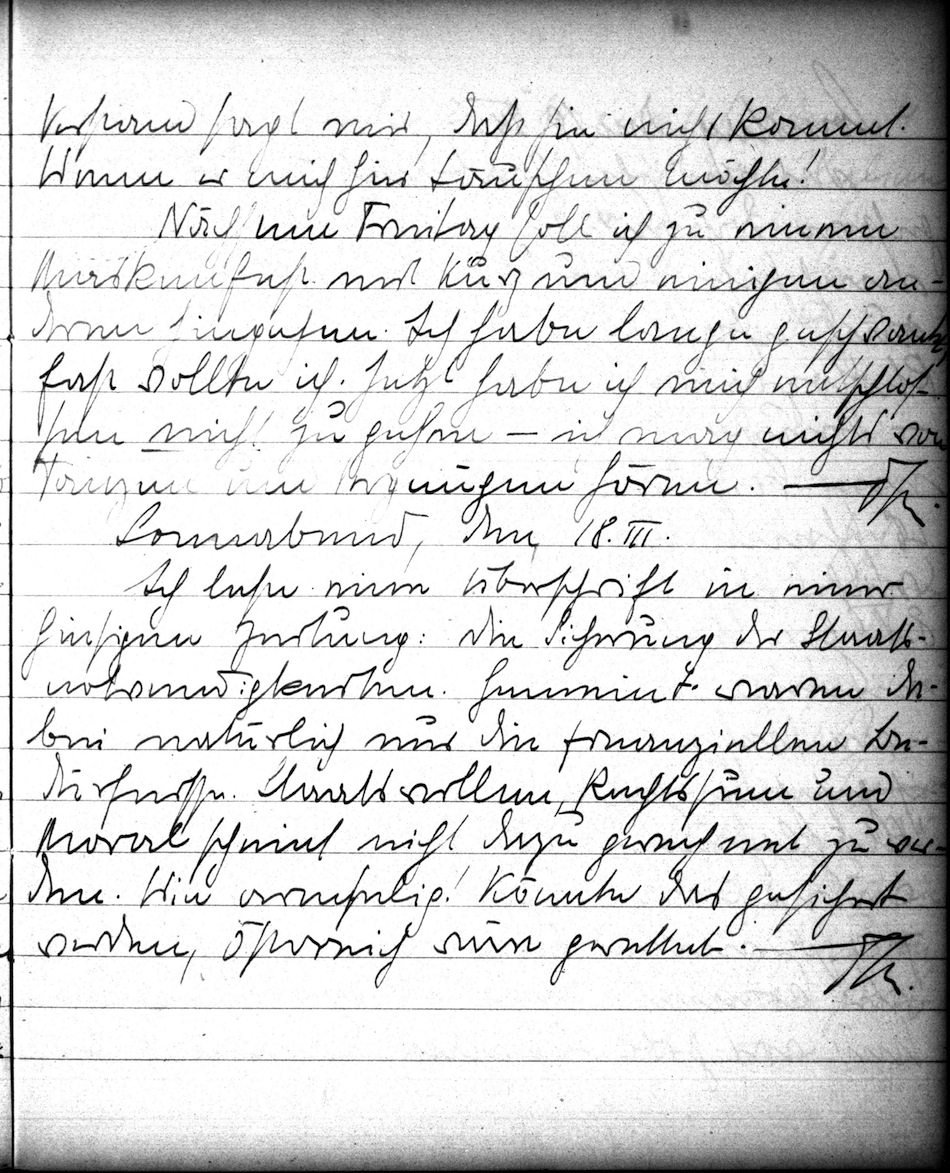 Verstand sagt mir, daß sie nicht kommt.
Wenn er mich hier täuschen möchte!
Nächsten Freitag soll ich zu einem
Maskenfest mit Kurz und einigen an-
deren hingehen. Ich habe lange geschwankt
fast wollte ich. Jetzt habe ich mich entschlos-
sen nicht zu gehen – ich mag nichts von
Tanzen und Vergnügen hören. –
Sonnabend, den 18. III.
Ich lese eine Überschrift in einer
hiesigen Zeitung: die Sicherung der Staats-
notwendigkeiten. Gemeint waren da-
bei natürlich nur die finanziellen Be-
dürfnisse. Staatswillen, Rechtssinn und
Moral scheint nicht dazu gerechnet zu wer-
den. Wie armselig! Könnte das gesichert
werden, Österreich wäre gerettet. –